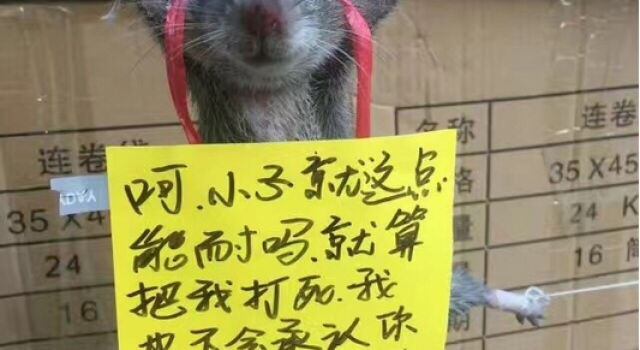 连卷
35 X 4
24
16
呵.小子就这点
能耐吗.就算
把我打死.我
也不会承认你
名称 连卷
格 35 X45
量 24 K
期 16